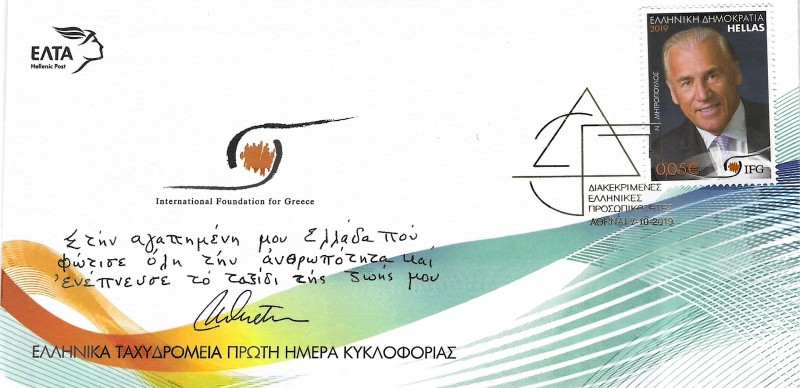 ΕΛΤΑ
Hellenic Post
ΕΛΛΗΝΙΚΗ ΔΗΜΟΚΡΑΤΙΑ
2019 HELLAS
Ν. ΜΗΤΡΟΠΟΥΛΟΣ
0,05€
IFG
International Foundation for Greece
ΔΙΑΚΕΚΡΙΜΕΝΕΣ
ΕΛΛΗΝΙΚΕΣ
ΠΡΟΣΩΠΙΚΟΤΗΤΕΣ
ΑΘΗΝΑΙ 7-10-2019
Στήν αγαπημένη μου Ελλάδα πού
φώτισε όλη τήν ανθρωπότητα καί
ενέπνευσε τό ταξίδι τής ζωής μου
ΕΛΛΗΝΙΚΑ ΤΑΧΥΔΡΟΜΕΙΑ ΠΡΩΤΗ ΗΜΕΡΑ ΚΥΚΛΟΦΟΡΙΑΣ